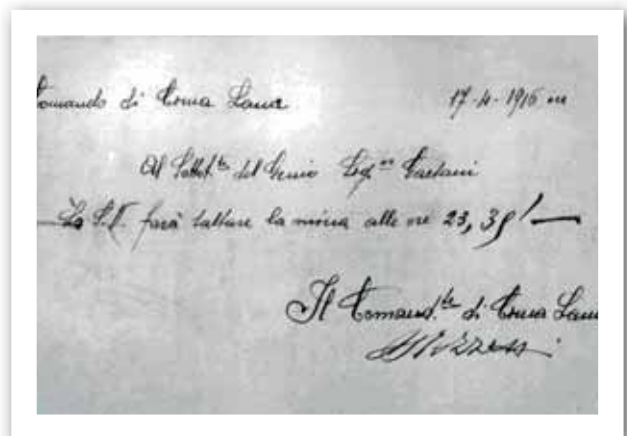 Comando di Cima Lana 17-4-1916
Al Sottot.te del Genio Caetani
La S.V. farà saltare la mina alle ore 23,35'
Il Comand.te di Cima Lana